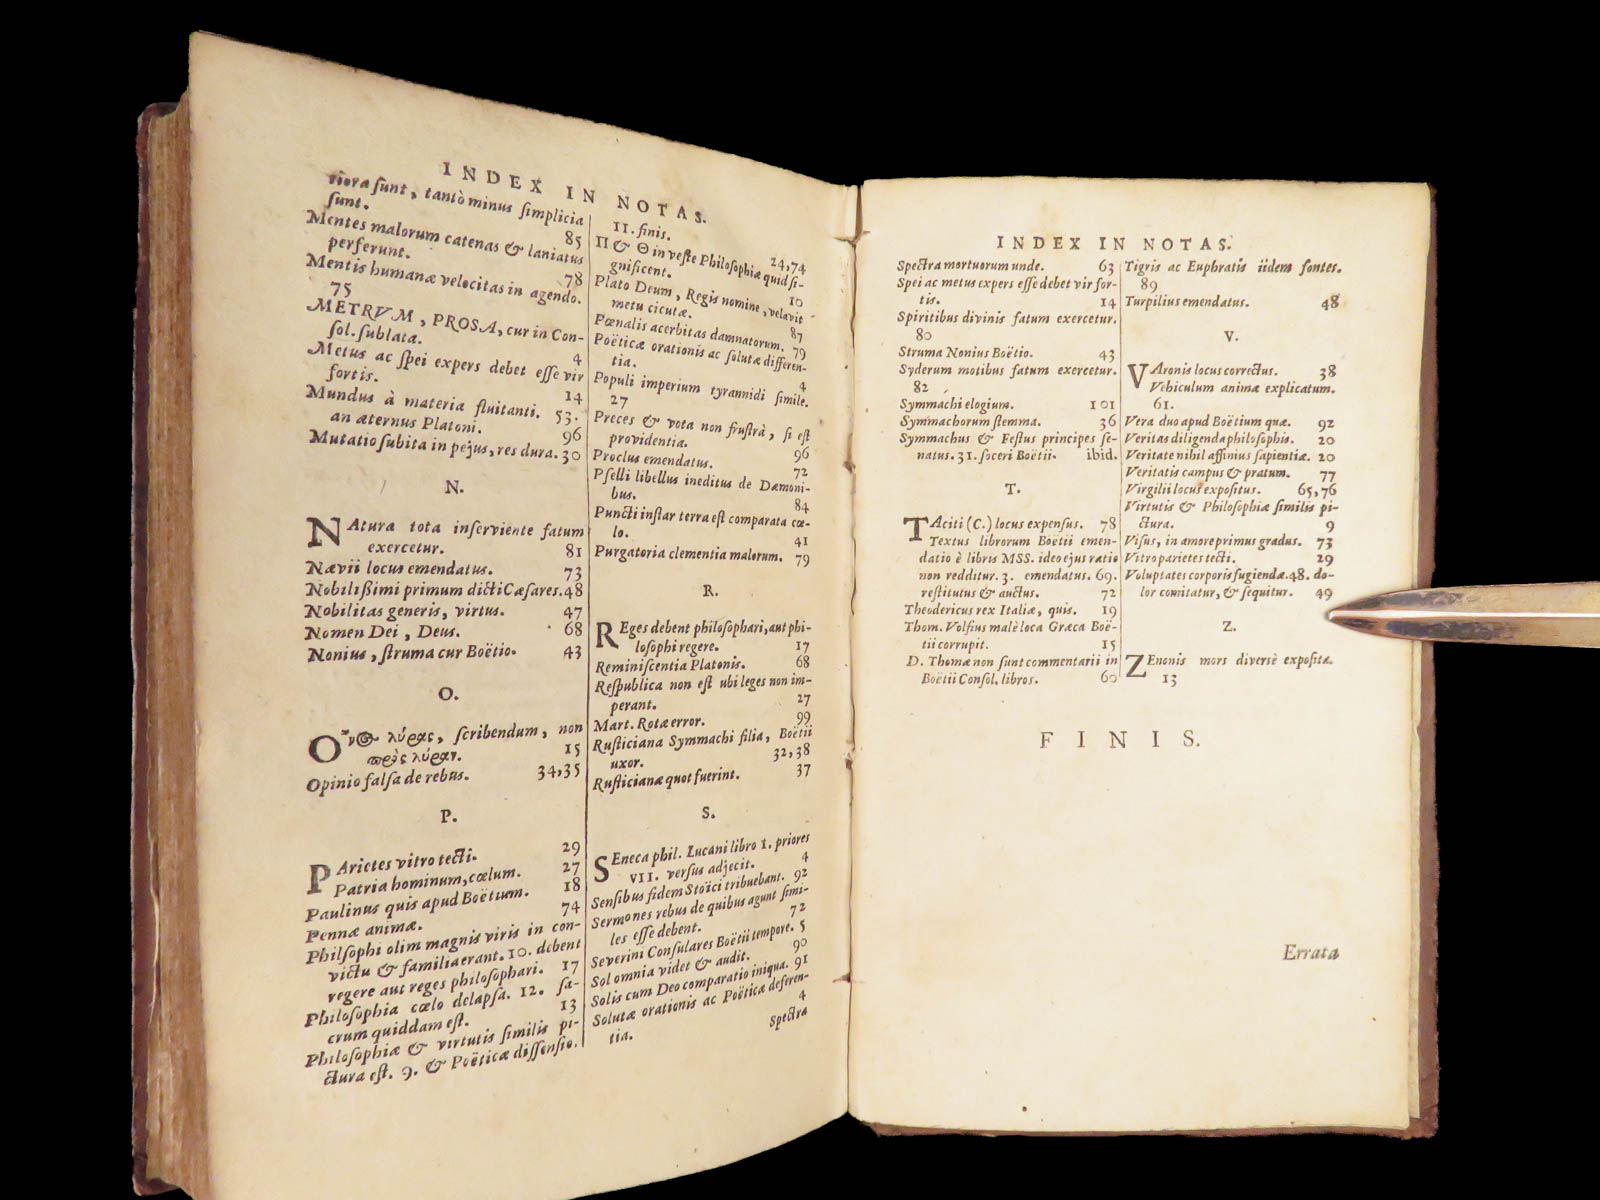 INDEX IN NOTAS.
viora sunt, tantò minus simplicia
sunt. 85
Mentes malorum catenas & laniatus
perferunt. 78
Mentis humanæ velocitas in agendo.
75
METRVM, PROSA, cur in Con-
sol. sublata. 4
Metus ac spei expers debet esse vir
fortis. 14
Mundus à materia fluitanti. 53.
an æternus Platoni. 96
Mutatio subita in pejus, res dura. 30
N.
NAtura tota inserviente fatum
exercetur. 81
Nævii locus emendatus. 73
Nobilißimi primum dicti Cæsares. 48
Nobilitas generis, virtus. 47
Nomen Dei, Deus. 68
Nonius, struma cur Boëtio. 43
O.
Ὄνος λύρας, scribendum, non
πρὸς λύραν. 15
Opinio falsa de rebus. 34,35
P.
PArietes vitro tecti. 29
Patria hominum, cœlum. 27
Paulinus quis apud Boëtium. 18
Pennæ animæ. 74
Philsophi olim magnis viris in con-
victu & familia erant. 10. debent
regere aut reges philosophari. 17
Philosophia cœlo delapsa. 12. sa-
crum quiddam est. 13
Philosophiæ & virtutis similis pi-
ctura est. 9. & Poëticæ dissensio.
11. finis. 24,74
Π & Θ in veste Philosophiæ quid si-
gnificent. 10
Plato Deum, Regis nomine, velavit
metu cicutæ. 87
Pœnalis acerbitas damnatorum. 79
Poëticæ orationis ac solutæ differen-
tia. 4
Populi imperium tyrannidi simile.
27
Preces & vota non frustrà, si est
providentia. 96
Proclus emendatus. 72
Pselli libellus ineditus de Dæmoni-
bus. 84
Puncti instar terra est comparata cœ-
lo. 41
Purgatoria clementia malorum. 79
R.
REges debent philosophari, aut phi-
losophi regere. 17
Reminiscentia Platonis. 68
Respublica non est ubi leges non im-
perant. 27
Mart. Rotæ error. 99
Rusticiana Symmachi filia, Boëtii
uxor. 32,38
Rusticianæ quot fuerint. 37
S.
SEneca phil. Lucani libro I. priores
VII. versus adjecit. 4
Sensibus fidem Stoïci tribuebant. 92
Sermones rebus de quibus agunt simi-
les esse debent. 72
Severini Consulares Boëtii tempore. 5
Sol omnia videt & audit. 90
Solis cum Deo comparatio iniqua. 91
Solutæ orationis ac Poëticæ deferen-
tia. 4
Spectra
INDEX IN NOTAS.
Spectra mortuorum unde. 63
Spei ac metus expers esse debet vir for-
tis. 14
Spiritibus divinis fatum exercetur.
80
Struma Nonius Boëtio. 43
Syderum motibus fatum exercetur.
82
Symmachi elogium. 101
Symmachorum stemma. 36
Symmachus & Festus principes se-
natus. 31. soceri Boëtii. ibid.
T.
TAciti (C.) locus expensus. 78
Textus librorum Boëtii emen-
datio è libris MSS. ideo ejus ratio
non redditur. 3. emendatus. 69.
restitutus & auctus. 72
Theodericus rex Italiæ, quis. 19
Thom. Volfius malè loca Græca Boë-
tii corrupit. 15
D. Thomæ non sunt commentarii in
Boëtii Consol. libros. 60
Tigris ac Euphratis iidem fontes.
89
Turpilius emendatus. 48
V.
VAronis locus correctus. 38
Vehiculum animæ explicatum.
61.
Vera duo apud Boëtium quæ. 92
Veritas diligenda philosophis. 20
Veritate nihil affinius sapientiæ. 20
Veritatis campus & pratum. 77
Virgilii locus expositus. 65,76
Virtutis & Philosophiæ similis pi-
ctura. 9
Visus, in amore primus gradus. 73
Vitro parietes tecti. 29
Voluptates corporis fugiendæ. 48. do-
lor comitatur, & sequitur. 49
Z.
ZEnonis mors diversè exposita.
13
FINIS.
Errata